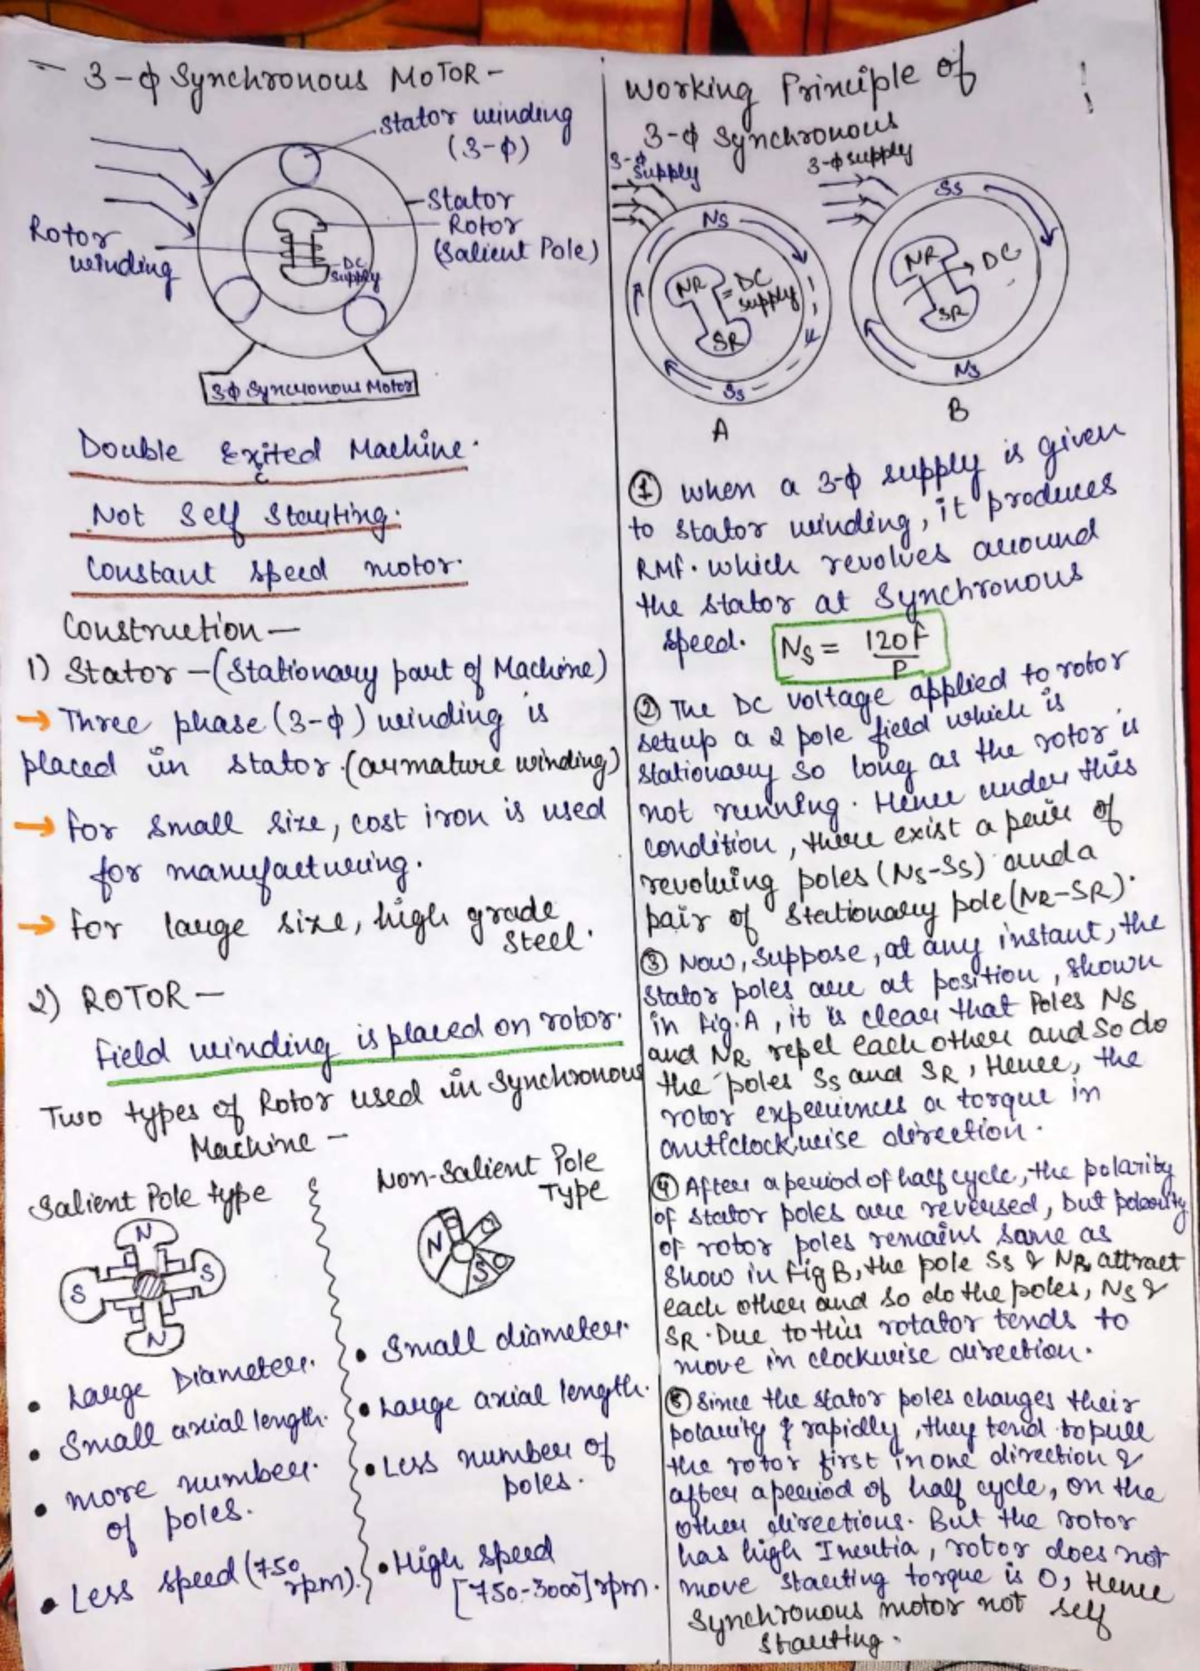 3-ϕ Synchronous MoTOR -
Stator winding
(3-ϕ)
Stator
Rotor
(Salient Pole)
Rotor
winding
DC
supply
3ϕ Synchronous Motor
Double Excited Machine.
Not Self Starting.
Constant speed motor.
Construction —
1) Stator - (Stationary part of Machine)
→ Three phase (3-ϕ) winding is
placed in stator. (armature winding)
→ for small size, cost iron is used
for manufacturing.
→ for large size, high grade
steel.
2) ROTOR —
field winding is placed on rotor.
Two types of Rotor used in Synchronous
Machine —
Salient Pole type
N
S
S
N
• Large Diameter.
• Small axial length.
• more number
of poles.
• Less speed (750
rpm).
Non-Salient Pole
Type
N
S
• Small diameter.
• Large axial length.
• Less number of
poles.
• High speed
[750-3000] rpm.
Working Principle of
3-ϕ Synchronous
3-ϕ
supply
NS
NR
DC
supply
SR
SS
A
3-ϕ supply
SS
NR
DC
SR
NS
B
① When a 3-ϕ supply is given
to stator winding, it produces
RMF. which revolves around
the stator at Synchronous
speed. NS = 120f/P
② The DC voltage applied to rotor
setup a 2 pole field which is
stationary so long as the rotor is
not running. Hence under this
condition, there exist a pair of
revolving poles (NS-SS) and a
pair of Stationary pole (NR-SR).
③ Now, suppose, at any instant, the
stator poles are at position, shown
in fig.A, it is clear that Poles NS
and NR repel each other and so do
the poles SS and SR, Hence, the
rotor experiences a torque in
anticlockwise direction.
④ After a period of half cycle, the polarity
of stator poles are reversed, but polarity
of rotor poles remains same as
show in fig B, the pole SS & NR attract
each other and so do the poles, NS &
SR. Due to this rotator tends to
move in clockwise direction.
⑤ Since the stator poles changes their
polarity & rapidly, they tend to pull
the rotor first in one direction &
after a period of half cycle, on the
other directions. But the rotor
has high Inertia, rotor does not
move starting torque is 0, Hence
Synchronous motor not self
starting.